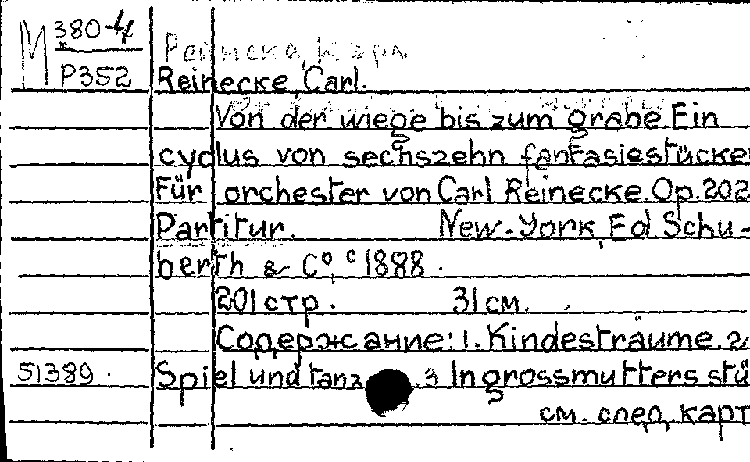 М 380-4
Р352
Рейнеке, Карл
Reinecke, Carl.
Von der wiege bis zum grabe. Ein
cyclus von sechszehn fantasiestücke
Für orchester von Carl Reinecke. Op. 202
Partitur. New-York, Ed Schu-
berth & C°, c 1888.
201 стр. 31 см.
Содержание: 1. Kindesträume. 2
51389. Spiel und tanz. 3 In grossmutters stü
см. след. карт